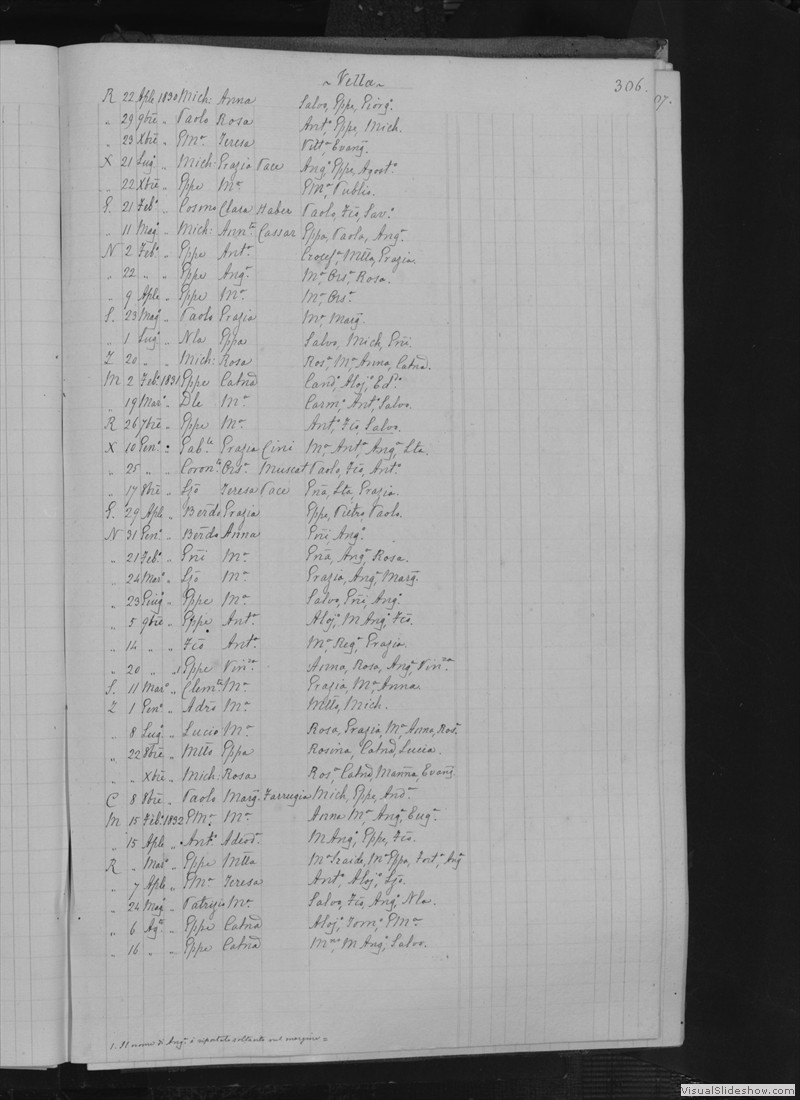 ~ Vella ~
306.
07.
R 22 Aple 1830 Mich: Anna Salvo, Eppa, Giorg.º
" 29 9bre " Paolo Rosa Ant.º Eppe, Mich.
" 23 Xbre " GMª Teresa Vittª Evang.
X 21 Lug.º " Mich: Grazia Pace Ang.º Eppe, Agost.º
" 22 Xbre " Eppe Mª GMª Publio.
G. 21 Feb.º " Cosmo Clara Haber Paolo, Fco, Sav.º
" 11 Mag.º " Mich: Ann.ta Cassar Eppa, Paola, Ang.ª
N 2 Feb.º " Eppe Ant.ª Crocef.ª Mtta, Grazia.
" 22 " " Eppe Ang.ª Mª Ors.ª Rosa.
" 9 Aple " Eppe Mª Mª Ors.ª
S. 23 Mag.º " Paolo Grazia Mª Marg.
" 1 Lug.º " Nla Eppa Salvo, Mich, Gni.
Z 20 " " Mich: Rosa Ros.ª Mª Anna, Catnã.
M 2 Feb.º 1831 Eppe Catnã Cand.º Aloj.º Ed.º
" 19 Mar.º " Dle Mª Carm.º Ant.º Salvo.
R 26 7bre " Eppe Mª Ant.º Fco, Salvo.
X 10 Gen.º " Gab.le Grazia Cini Mª Ant.ª Ang.ª Lta.
" 25 " " Coron.to Ors.ª Muscat Paolo, Fco, Ant.º
" 17 8bre " Ljo Teresa Pace Gna, Lta, Grazia.
G. 29 Aple " Berdo Grazia Eppe, Pietro, Paolo.
N 31 Gen.º " Berdo Anna Gni Ang.º
" 21 Feb.º " Gni Mª Gna, Ang.ª Rosa.
" 24 Mar.º " Ljo Mª Grazia, Ang.ª Marg.
" 23 Giug.º " Eppe Mª Salvo, Gni, Ang.º
" 5 9bre " Eppe Ant.ª Aloj.º M Ang.º Fco.
" 14 " " Fco Ant.ª Mª Reg.ª Grazia.
" 20 " "1 Eppe Vin.za Anna, Rosa, Ang.ª Vin.za
S. 11 Mar.º " Clem.te Mª Grazia, Mª Anna.
Z 1 Gen.º " Adro Mª Mtto, Mich.
" 8 Lug.º " Lucio Mª Rosa, Grazia, Mª Anna, Ros.ª
" 22 8bre " Mtto Eppa Rosina, Catnã, Lucia.
" " Xbre " Mich: Rosa Ros.ª Catnã, Marina, Evang.
C 8 8bre " Paolo Marg. Farrugia Mich, Eppe, And.ª
M 15 Feb.º 1832 GMª Mª Anna Mª Ang.ª Eug.ª
" 15 Aple " Ant.º Adeod.ª M Ang.º Eppe, Fco.
R " Mar.º " Eppe Mtta Eppa, Fort.ª Ang.ª
" 7 Aple " GMª Teresa Ant.º Aloj.º Ljo.
" 24 Mag.º " Patrizio Mª Salvo, Fco, Ang.º Nla.
" 6 Ag.to " Eppe Catnã Aloj.º Tom.º GMª
" 16 " " Eppe Catnã M Ang.º Salvo.
1. Il nome di Ang.ª è riportato soltanto nel margine =
VisualSlideshow.com